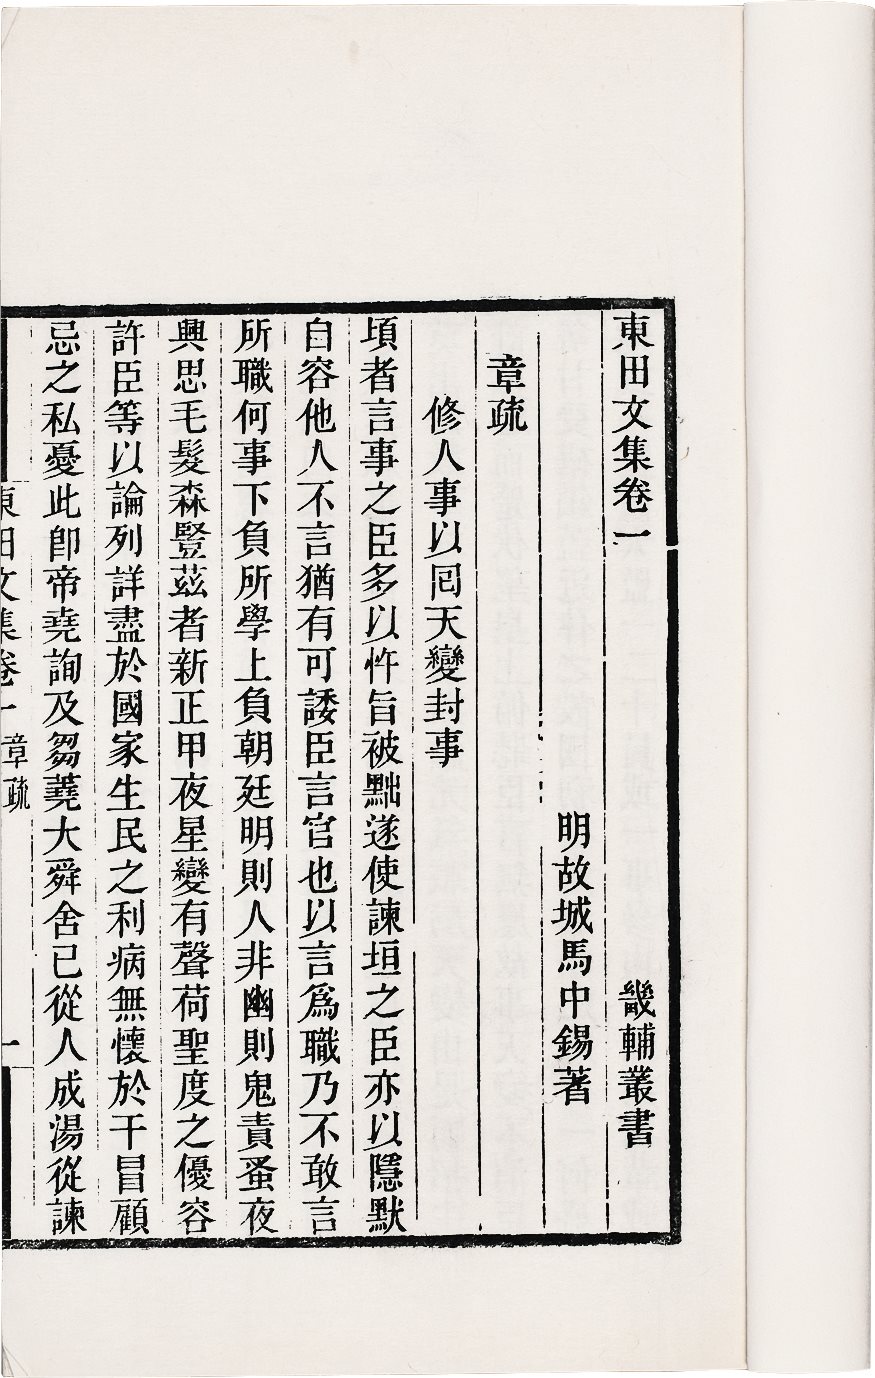 東田文集卷一 畿輔叢書
明故城馬中錫著
章疏
修人事以囘天變封事
頃者言事之臣多以忤旨被黜遂使諫垣之臣亦以隱默
自容他人不言猶有可諉臣言官也以言爲職乃不敢言
所職何事下負所學上負朝廷明則人非幽則鬼責蚤夜
興思毛髮森豎茲者新正甲夜星變有聲荷聖度之優容
許臣等以論列詳盡於國家生民之利病無懷於干冒顧
忌之私憂此卽帝堯詢及芻蕘大舜舍己從人成湯從諫
東田文集卷一 章疏 一